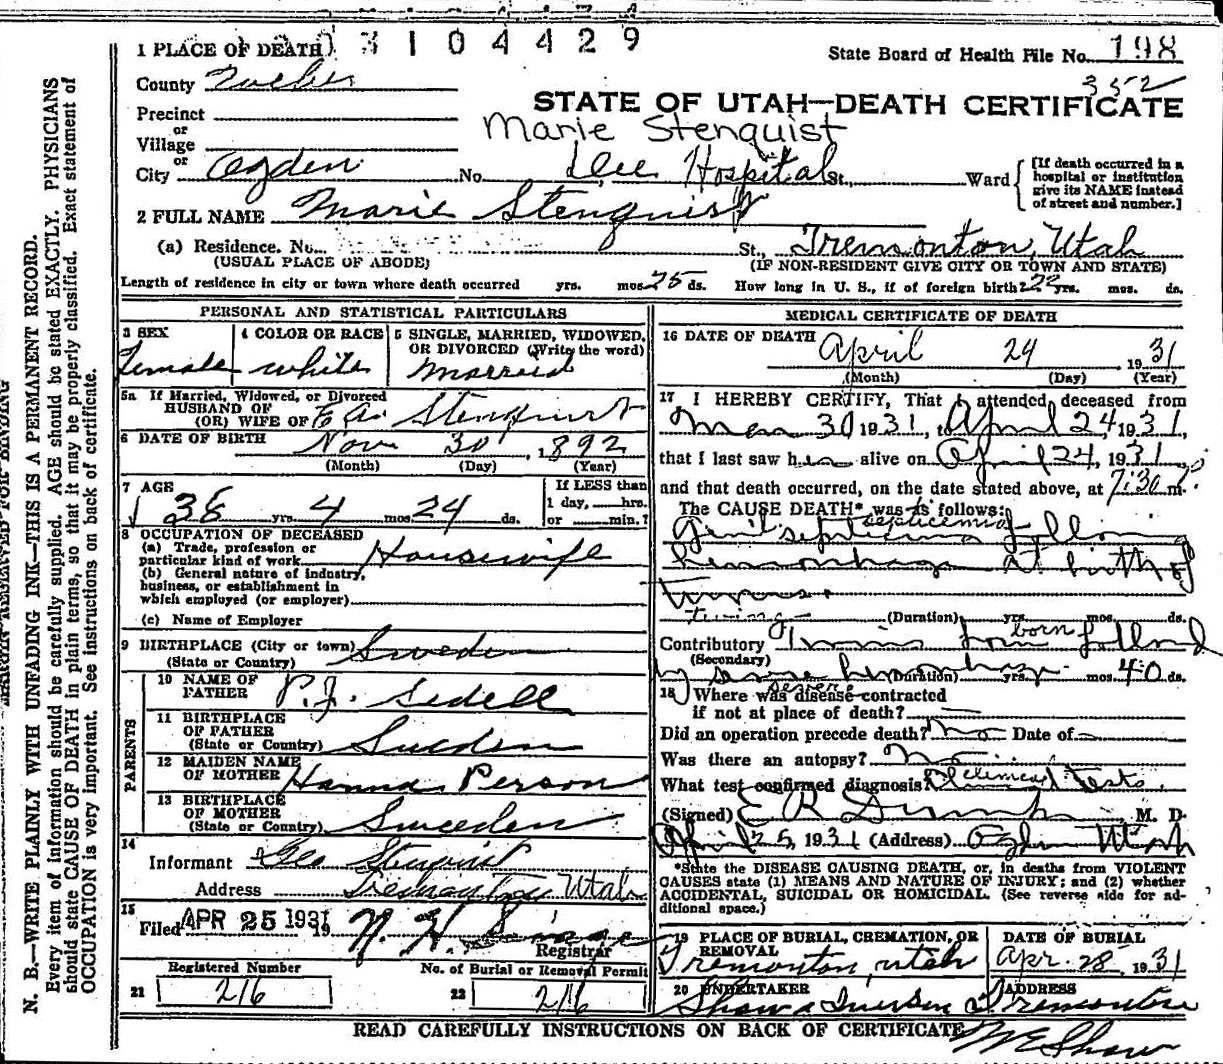 3104429
1 PLACE OF DEATH
State Board of Health File No. 198
352
County Weber
STATE OF UTAH—DEATH CERTIFICATE
Precinct
or
Marie Stenquist
Village
or
City Ogden No. Dee Hospital St., Ward
[If death occurred in a hospital or institution give its NAME instead of street and number.]
2 FULL NAME Marie Stenquist
(a) Residence. No. St., Tremonton, Utah
(USUAL PLACE OF ABODE) (IF NON-RESIDENT GIVE CITY OR TOWN AND STATE)
Length of residence in city or town where death occurred yrs. mos. 25 ds. How long in U. S., if of foreign birth? yrs. mos. ds.
PERSONAL AND STATISTICAL PARTICULARS
3 SEX
Female
4 COLOR OR RACE
white
5 SINGLE, MARRIED, WIDOWED,
OR DIVORCED (Write the word)
Married
5a If Married, Widowed, or Divorced
HUSBAND OF
(OR) WIFE OF Stenquist
6 DATE OF BIRTH Nov 30, 1892
(Month) (Day) (Year)
7 AGE
38 yrs. 4 mos. 24 ds.
If LESS than
1 day, hrs.
or min.?
8 OCCUPATION OF DECEASED
(a) Trade, profession or
particular kind of work Housewife
(b) General nature of industry,
business, or establishment in
which employed (or employer)
(c) Name of Employer
9 BIRTHPLACE (City or town) Sweden
(State or Country)
PARENTS
10 NAME OF
FATHER P. J. Sedell
11 BIRTHPLACE
OF FATHER
(State or Country) Sweden
12 MAIDEN NAME
OF MOTHER Hanna Person
13 BIRTHPLACE
OF MOTHER
(State or Country) Sweden
14
Informant Geo Stenquist
Address Tremonton, Utah
15
Filed APR 25 1931 19
Registrar
Registered Number
21 216
No. of Burial or Removal Permit
22 216
MEDICAL CERTIFICATE OF DEATH
16 DATE OF DEATH
April 24 1931
(Month) (Day) (Year)
17 I HEREBY CERTIFY, That I attended deceased from
Mar 30 1931, to April 24, 1931,
that I last saw her alive on April 24, 1931,
and that death occurred, on the date stated above, at 7:30 m.
The CAUSE DEATH* was as follows:
septicemia
septicemia following
hemorrhage at birth of
twins.
twins (Duration) yrs. mos. ds.
Contributory Twins born followed
born
(Secondary)
by severe hemorrhage (Duration) yrs. mos. 40 ds.
severe
18 Where was disease contracted
if not at place of death?
Did an operation precede death? No Date of
Was there an autopsy? No
What test confirmed diagnosis? Clinical tests
(Signed) E R M. D.
April 25, 1931 (Address) Ogden Utah
*State the DISEASE CAUSING DEATH, or, in deaths from VIOLENT
CAUSES state (1) MEANS AND NATURE OF INJURY; and (2) whether
ACCIDENTAL, SUICIDAL OR HOMICIDAL. (See reverse side for ad-
ditional space.)
19 PLACE OF BURIAL, CREMATION, OR
REMOVAL
Tremonton, Utah
DATE OF BURIAL
Apr. 28, 1931
20 UNDERTAKER
Shaw & Iversen
ADDRESS
Tremonton
READ CAREFULLY INSTRUCTIONS ON BACK OF CERTIFICATE
M E Shaw
N. B.—WRITE PLAINLY WITH UNFADING INK—THIS IS A PERMANENT RECORD.
Every item of information should be carefully supplied. AGE should be stated EXACTLY. PHYSICIANS
should state CAUSE OF DEATH in plain terms, so that it may be properly classified. Exact statement of
OCCUPATION is very important. See instructions on back of certificate.